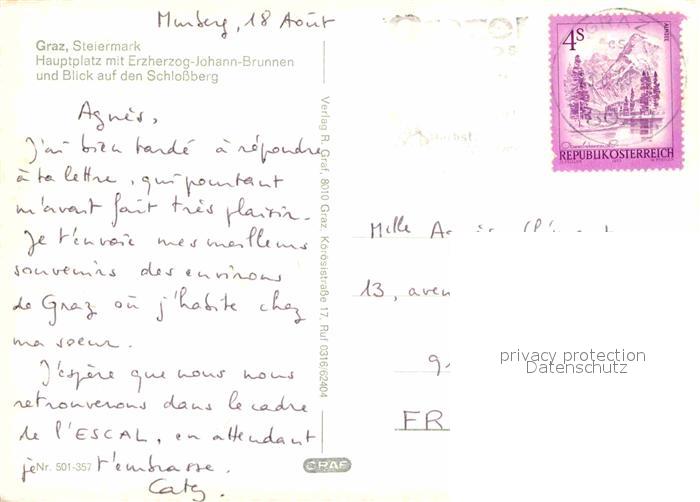 Murberg, 18 Août
Graz, Steiermark
Hauptplatz mit Erzherzog-Johann-Brunnen
und Blick auf den Schloßberg
Agnès,
J'ai bien tardé à répondre
à ta lettre, qui pourtant
m'avait fait très plaisir.
Je t'envoie mes meilleurs
souvenirs des environs
de Graz où j'habite chez
ma soeur.
J'espère que nous nous
retrouverons dans le cadre
de l'ESCAL, en attendant
je t'embrasse.
Caty.
Nr. 501-357
Verlag R. Graf, 8010 Graz, Körösistraße 17, Ruf 0316/62404
GRAF
GRAZ
4S
ALMSEE
REPUBLIK ÖSTERREICH
Mlle Agnès
13, aven
9
FR
privacy protection
Datenschutz